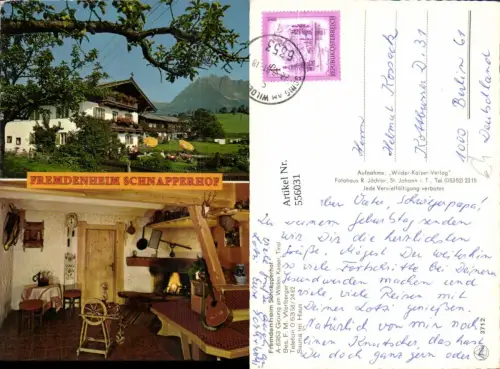 FREMDENHEIM SCHNAPPERHOF
Artikel Nr.
556031
REPUBLIK ÖSTERREICH
6353
GOING AM WILDE
Herrn
Helmut
1000 Berlin 61
Deutschland
Aufnahme: „Wilder-Kaiser-Verlag"
Fotohaus R. Jöchler, St. Johann i. T., Tel. (05352) 2515
Jede Vervielfältigung verboten
Fremdenheim Schnapperhof
A 6353 Going am Wilden Kaiser, Tirol
Bes. F. M.
Telefon 0 53 58 / 2442
Sauna im Haus
3712
Lieber Vater, Schwiegerpapa!
Zu Deinem Geburtstag senden
wir Dir die herzlichsten
Grüße. Mögest Du weiterhin
so viele Fortschritte bei Deinem
Gesundwerden machen und
viele, viele Reisen mit
Deiner Lotti genießen.
Natürlich von mir noch
einen Knutscher, das hast
Du doch ganz gern oder